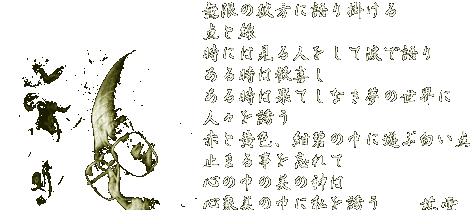 無限の彼方に語り掛ける
点と線
時には見る人をして涙で語り
ある時は歓喜し
ある時は果てしなき夢の世界に
人々を誘う
赤と黄色、紺碧の中に遊ぶ白い点
止まる事を忘れて
心の中の美の神は
心象美の中に私を誘う